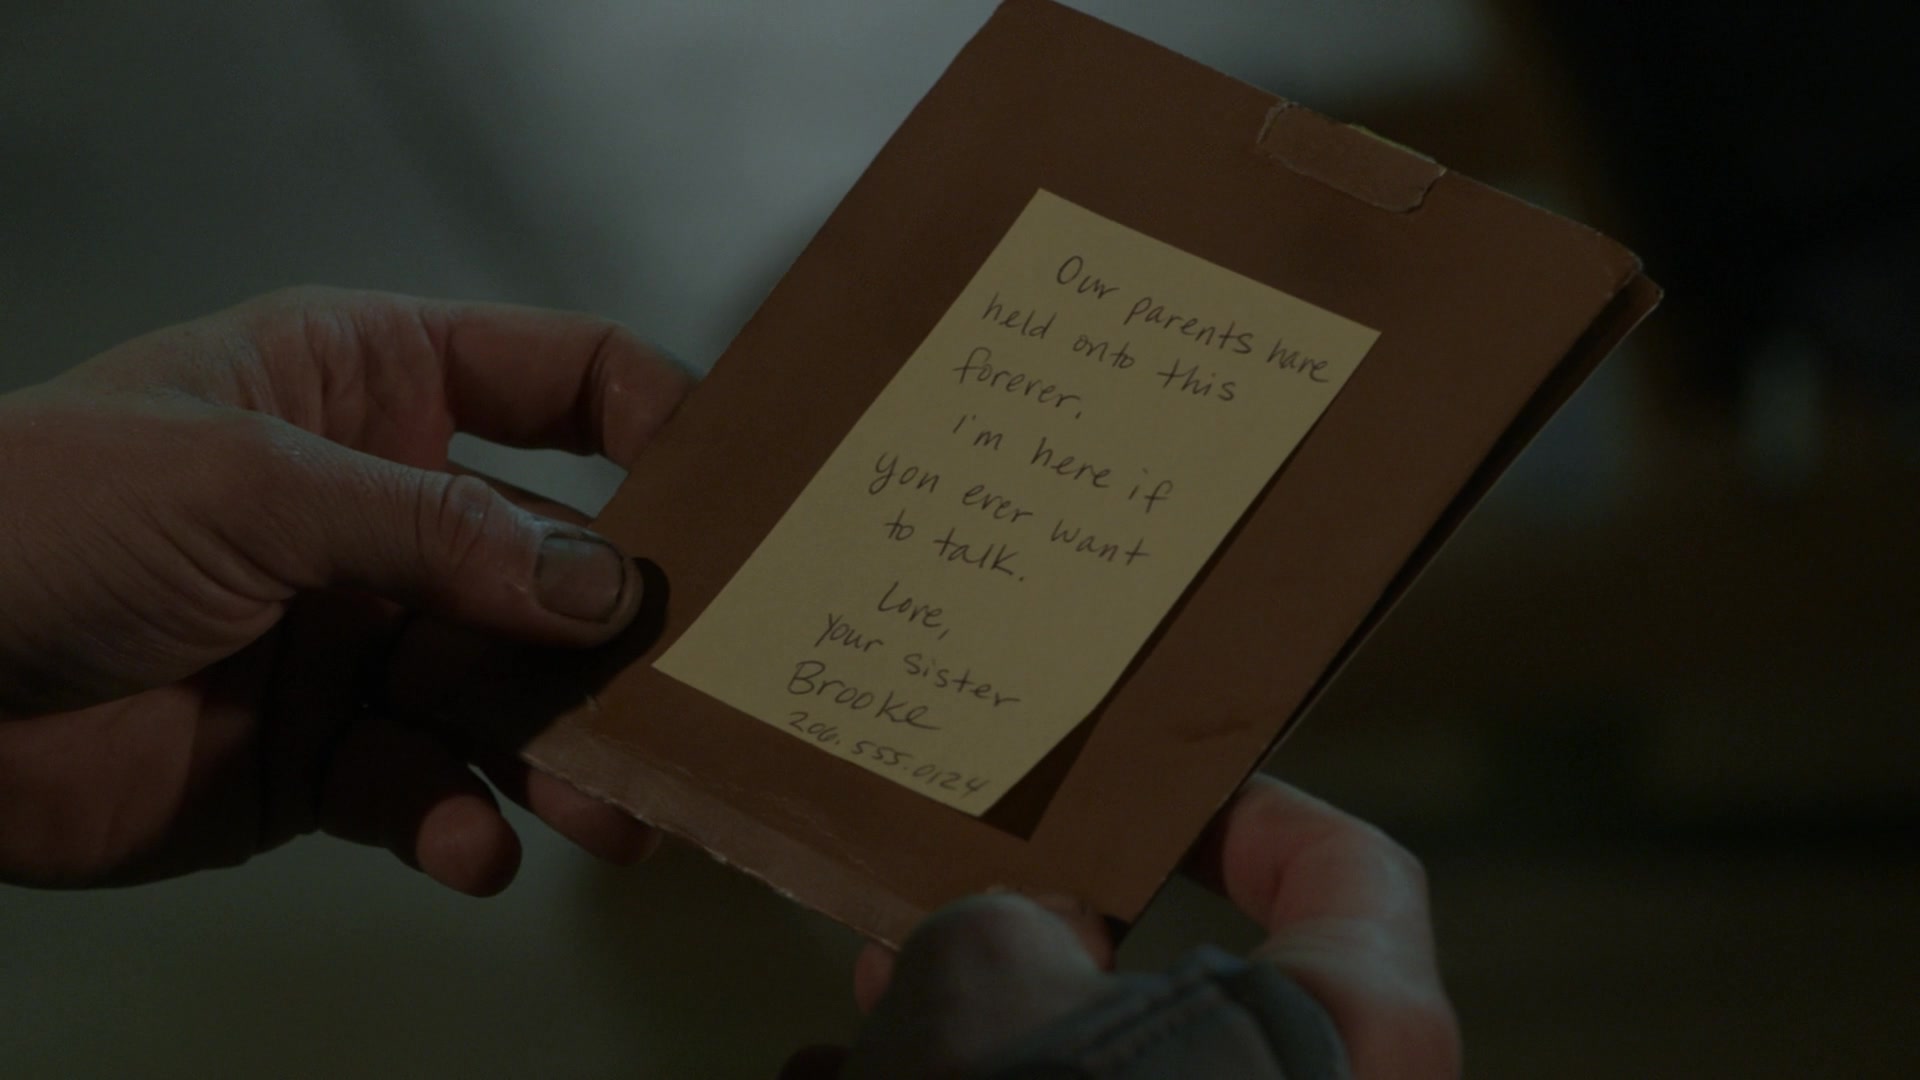 Our parents have
held onto this
forever.
I'm here if
you ever want
to talk.
Love,
your sister
Brooke
206.555.0124